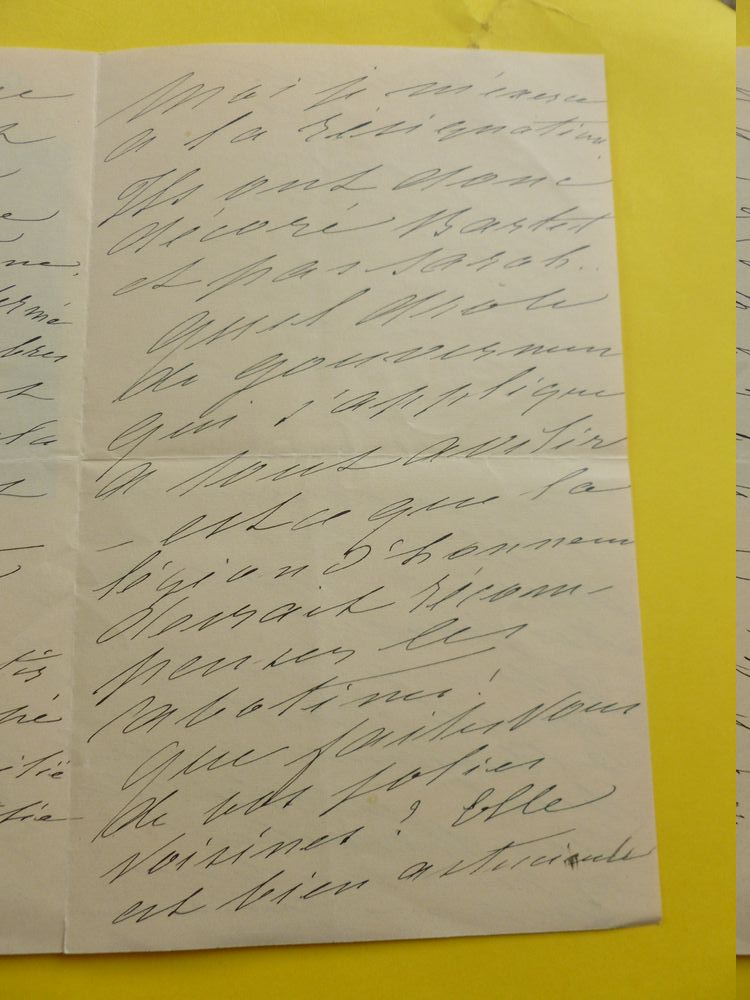 Moi je m'exerce
a la résignation.
Ils ont donc
décoré Bartet
et pas Sarah..
quel drole
de gouvernemen
qui s'applique
a tout avilir
– est ce que la
légion d'honneur
devrait récom-
penser les
cabotines!
que faites vous
de vos jolies
voisines? Elle
est bien astucieuse
ne,
fermé
bres
la